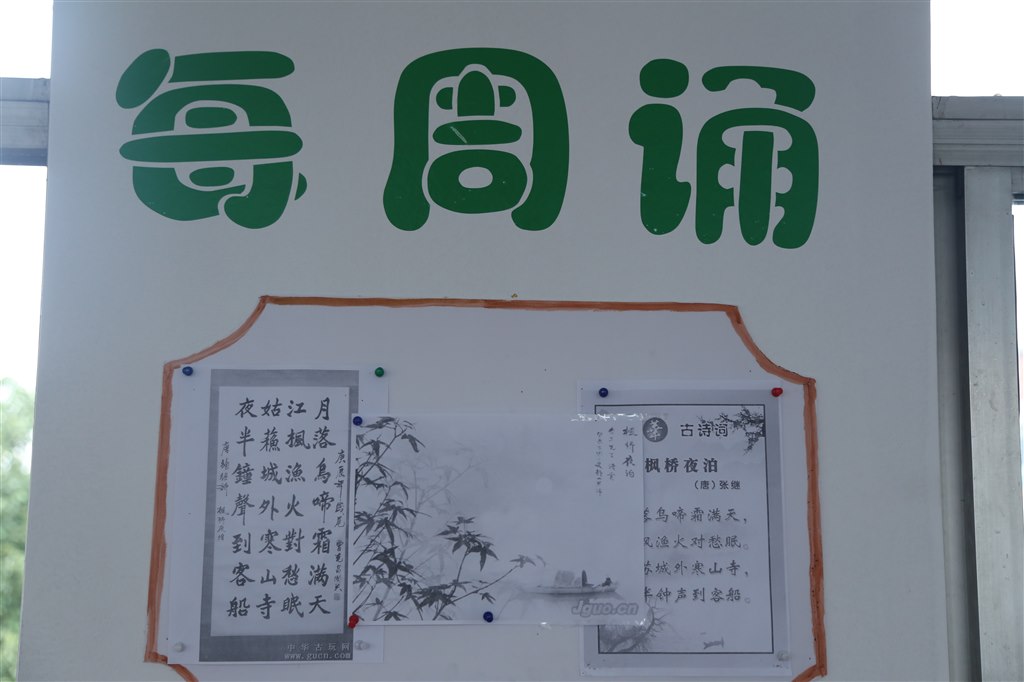 每周诵
月落烏啼霜滿天
江楓漁火對愁眠
姑蘓城外寒山寺
夜半鐘聲到客船
中华古玩网
www.gucn.com
枫桥夜泊
Jguo.cn
古诗词
枫桥夜泊
(唐)张继
乌啼霜满天，
渔火对愁眠。
城外寒山寺，
钟声到客船。